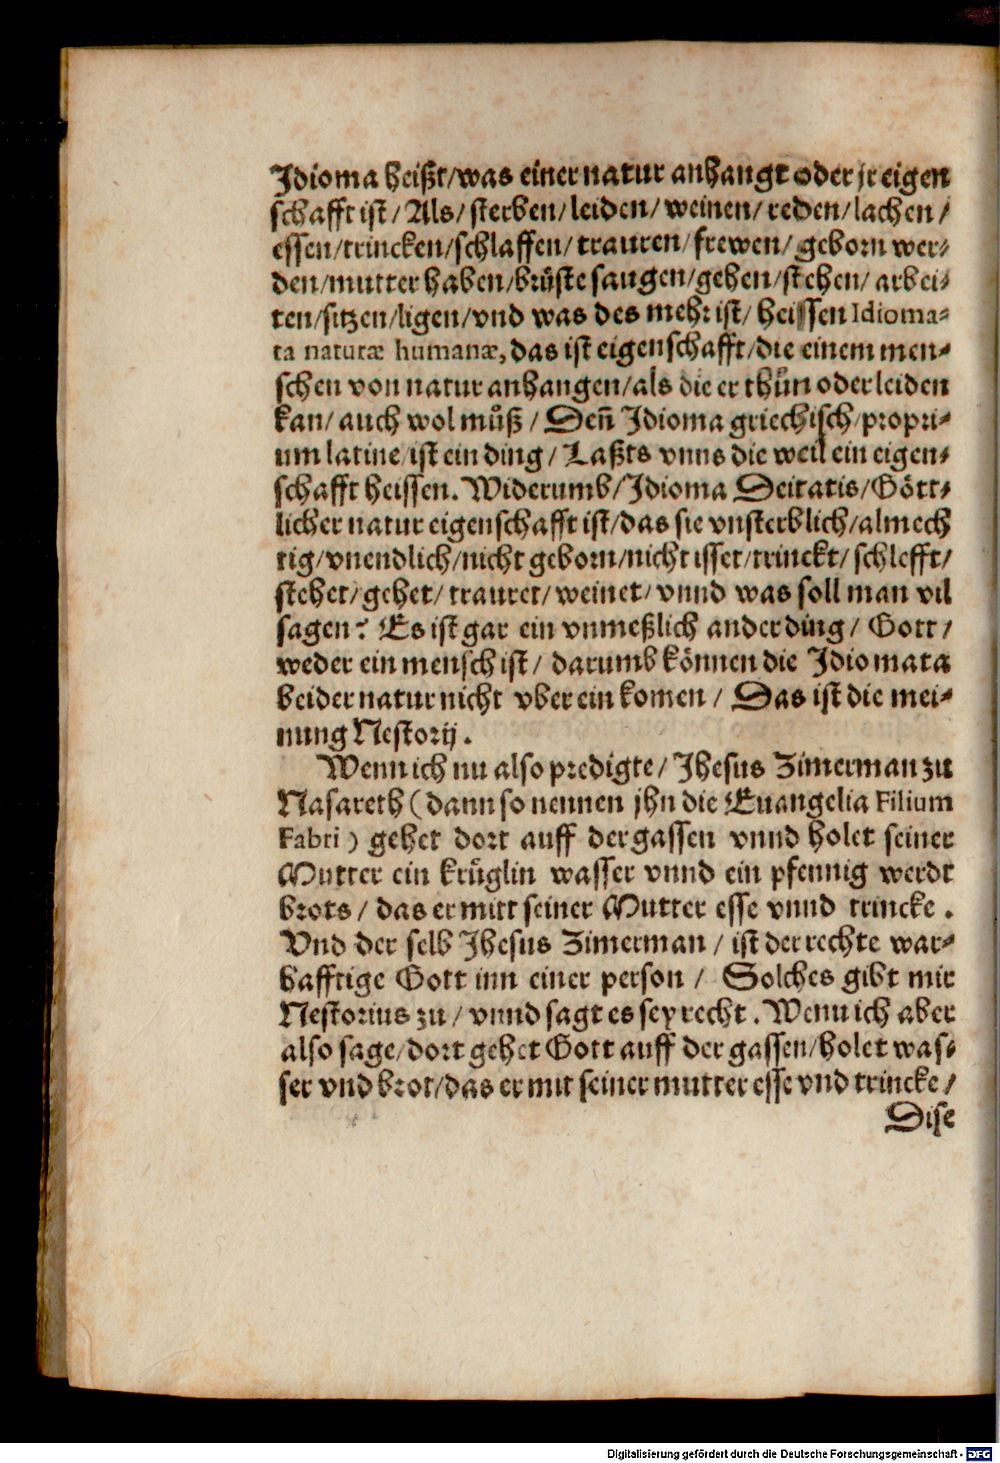 Idioma heißt/was einer natur anhangt oder jr eigen
schafft ist/ Als/ sterben/leiden/ weinen/ reden/lachen/
essen/trincken/schlaffen/ trauren/ frewen/ geborn wer-
den/mutter haben/brüste saugen/gehen/stehen/ arbei-
ten/sitzen/ligen/vnd was des mehr ist/ heissen Idioma-
ta naturæ humanæ, das ist eigenschafft/die einem men-
schen von natur anhangen/als die er thůn oder leiden
kan/auch wol můß/ Deñ Idioma griechisch/propri-
um latine/ist ein ding/ Laßts vnns die weil ein eigen-
schafft heissen. Widerumb/Idioma Deitatis/Gött-
licher natur eigenschafft ist/das sie vnsterblich/almech
tig/vnendlich/nicht geborn/nicht isset/trinckt/ schlefft/
stehet/gehet/ trauret/weinet/ vnnd was soll man vil
sagen? Es ist gar ein vnmeßlich ander ding/ Gott/
weder ein mensch ist/ darumb können die Idiomata
beider natur nicht vber ein komen/ Das ist die mei-
nung Nestorij.
Wenn ich nu also predigte/ Jhesus Zimerman zu
Nasareth (dann so nennen jhn die Euangelia Filium
Fabri) gehet dort auff der gassen vnnd holet seiner
Mutter ein krüglin wasser vnnd ein pfennig werdt
brots/ das er mitt seiner Mutter esse vnnd trincke.
Vnd der selb Jhesus Zimerman/ ist der rechte war-
hafftige Gott inn einer person/ Solches gibt mir
Nestorius zu/ vnnd sagt es sey recht. Wenn ich aber
also sage/dort gehet Gott auff der gassen/holet was-
ser vnd brot/das er mit seiner mutter esse vnd trincke/
Dise
Digitalisierung gefördert durch die Deutsche Forschungsgemeinschaft - DFG